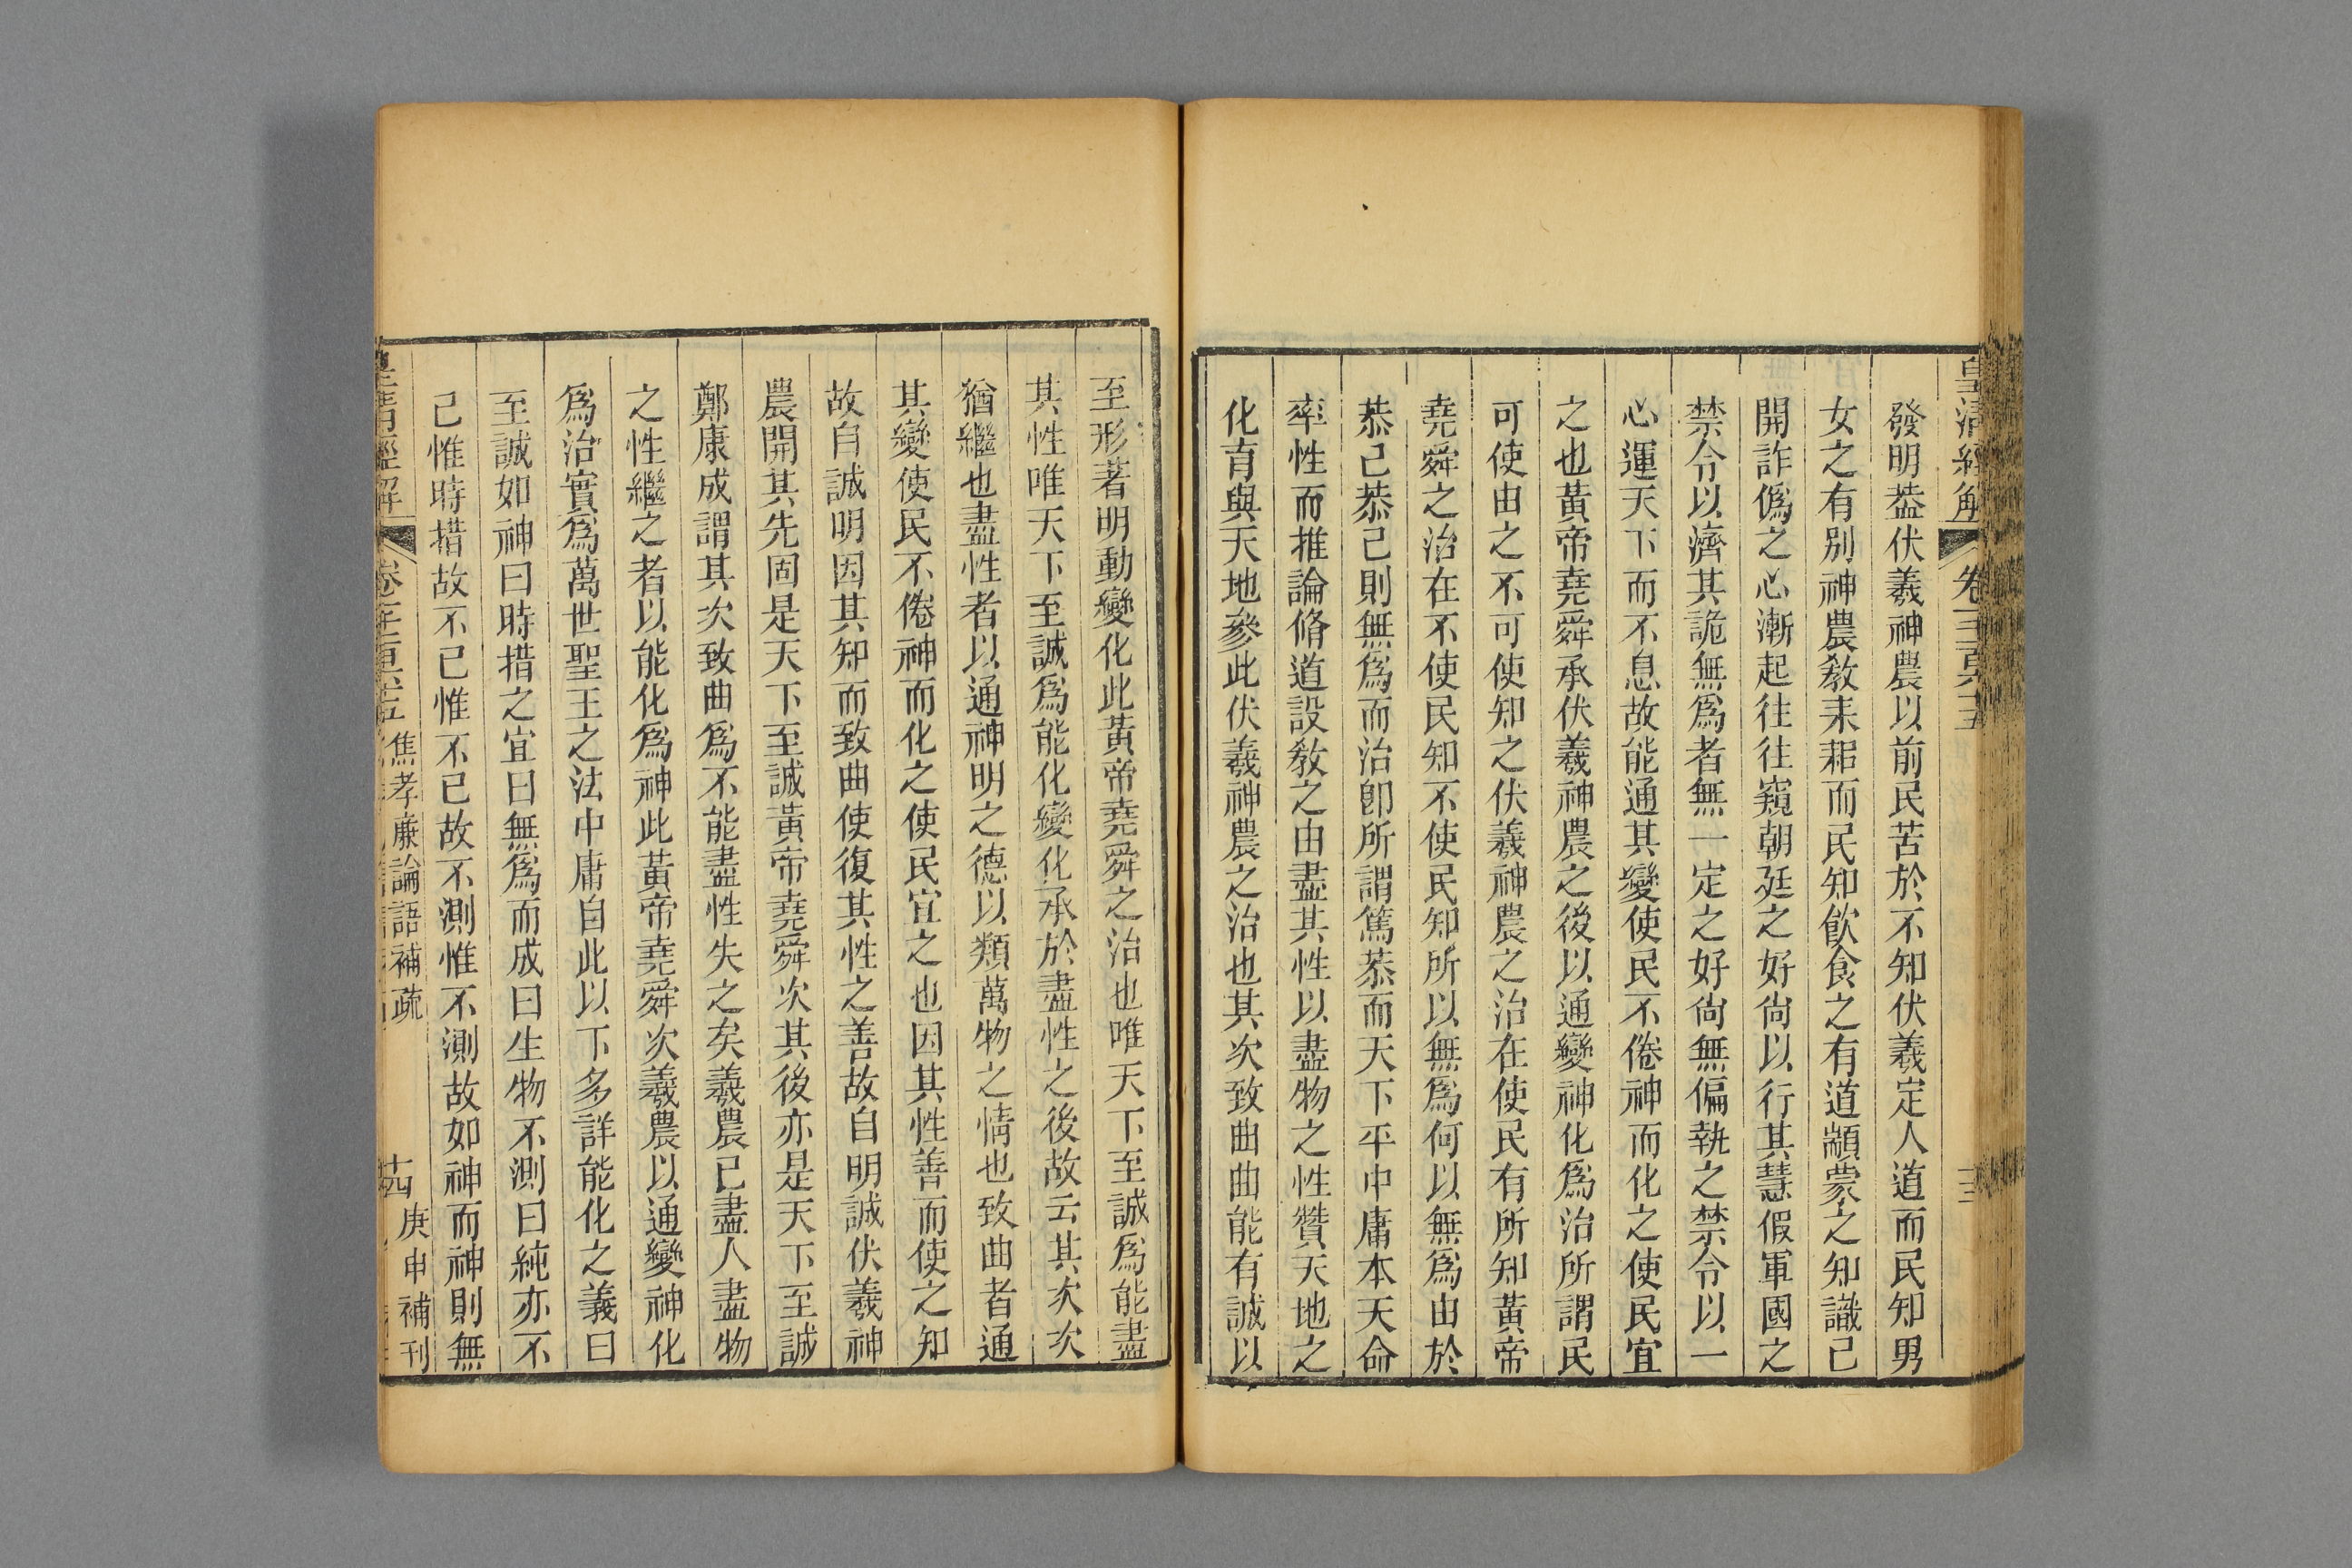 皇清經解
發明葢伏羲神農以前民苦於不知伏羲定人道而民知男
女之有別神農敎耒耜而民知飮食之有道顓蒙之知識已
開詐僞之心漸起往往窺朝廷之好尙以行其慧假軍國之
禁令以濟其詭無爲者無一定之好尙無偏執之禁令以一
心運天下而不息故能通其變使民不倦神而化之使民宜
之也黃帝堯舜承伏羲神農之後以通變神化爲治所謂民
可使由之不可使知之伏羲神農之治在使民有所知黃帝
堯舜之治在不使民知不使民知所以無爲何以無爲由於
恭己恭己則無爲而治卽所謂篤恭而天下平中庸本天命
率性而推論脩道設敎之由盡其性以盡物之性贊天地之
化育與天地參此伏羲神農之治也其次致曲曲能有誠以
至形著明動變化此黃帝堯舜之治也唯天下至誠爲能盡
其性唯天下至誠爲能化變化承於盡性之後故云其次次
猶繼也盡性者以通神明之德以類萬物之情也致曲者通
其變使民不倦神而化之使民宜之也因其性善而使之知
故自誠明因其知而致曲使復其性之善故自明誠伏羲神
農開其先固是天下至誠黃帝堯舜次其後亦是天下至誠
鄭康成謂其次致曲爲不能盡性失之矣羲農已盡人盡物
之性繼之者以能化爲神此黃帝堯舜次羲農以通變神化
爲治實爲萬世聖王之法中庸自此以下多詳能化之義曰
至誠如神曰時措之宜曰無爲而成曰生物不測曰純亦不
已惟時措故不已惟不已故不測惟不測故如神而神則無
皇清經解
焦孝廉論語補疏
十四
庚申補刊